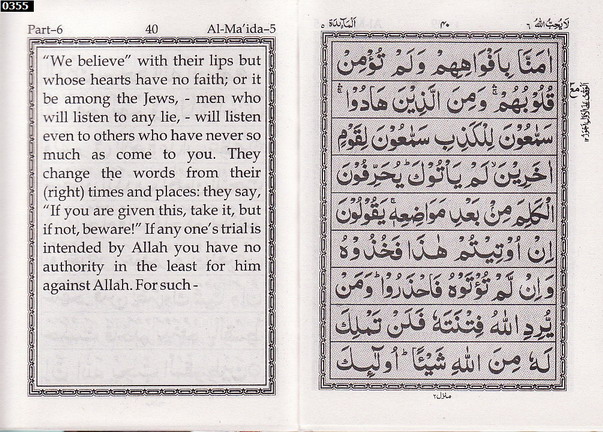 0355
Part–6 40 Al-Ma’ida–5
“We believe” with their lips but
whose hearts have no faith; or it
be among the Jews, - men who
will listen to any lie, - will listen
even to others who have never so
much as come to you. They
change the words from their
(right) times and places: they say,
“If you are given this, take it, but
if not, beware!” If any one’s trial is
intended by Allah you have no
authority in the least for him
against Allah. For such -
لَا يُحِبُّ اللهُ ٦ ٣٠ اَلْمَآئِدَة ٥
اٰمَنَّا بِاَفْوَاهِهِمْ وَلَمْ تُؤْمِنْ
قُلُوْبُهُمْ ۛ وَمِنَ الَّذِيْنَ هَادُوْا ۛ
سَمّٰعُوْنَ لِلْكَذِبِ سَمّٰعُوْنَ لِقَوْمٍ
اٰخَرِيْنَ ۙ لَمْ يَاْتُوْكَ ؕ يُحَرِّفُوْنَ
الْكَلِمَ مِنْۢ بَعْدِ مَوَاضِعِهٖ ۚ يَقُوْلُوْنَ
اِنْ اُوْتِيْتُمْ هٰذَا فَخُذُوْهُ
وَاِنْ لَّمْ تُؤْتَوْهُ فَاحْذَرُوْا ؕ وَمَنْ
يُّرِدِ اللهُ فِتْنَتَهٗ فَلَنْ تَمْلِكَ
لَهٗ مِنَ اللهِ شَيْـًٔا ؕ اُولٰٓئِكَ